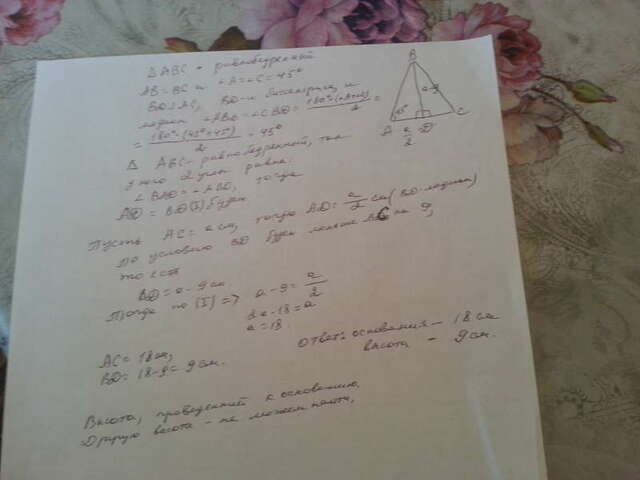 Δ ABC - равнобедренный
AB = BC и ∠A = ∠C = 45°
BD ⊥ AC, BD - и биссектриса, и
медиан ∠ABD = ∠CBD = 180° - (∠A+∠C) / 2 =
= 180° - (45° + 45°) / 2 = 45°
Δ ABC - равнобедренный, так
у него 2 угла равны.
∠BAD = ∠ABD, тогда
AD = BD (I) будет
Пусть AC = a см, тогда AD = a/2 см (BD - медиан)
По условию BD будет меньше AC на 9,
то есть
BD = a - 9 см.
Тогда по (I) => a - 9 = a/2
2a - 18 = a
a = 18.
AC = 18 см,
BD = 18 - 9 = 9 см.
Ответ: основания - 18 см
высота - 9 см.
Высота, проведенний к основанию.
Другую высота - не можем найти,
B
45°
a-9
A a/2 D C